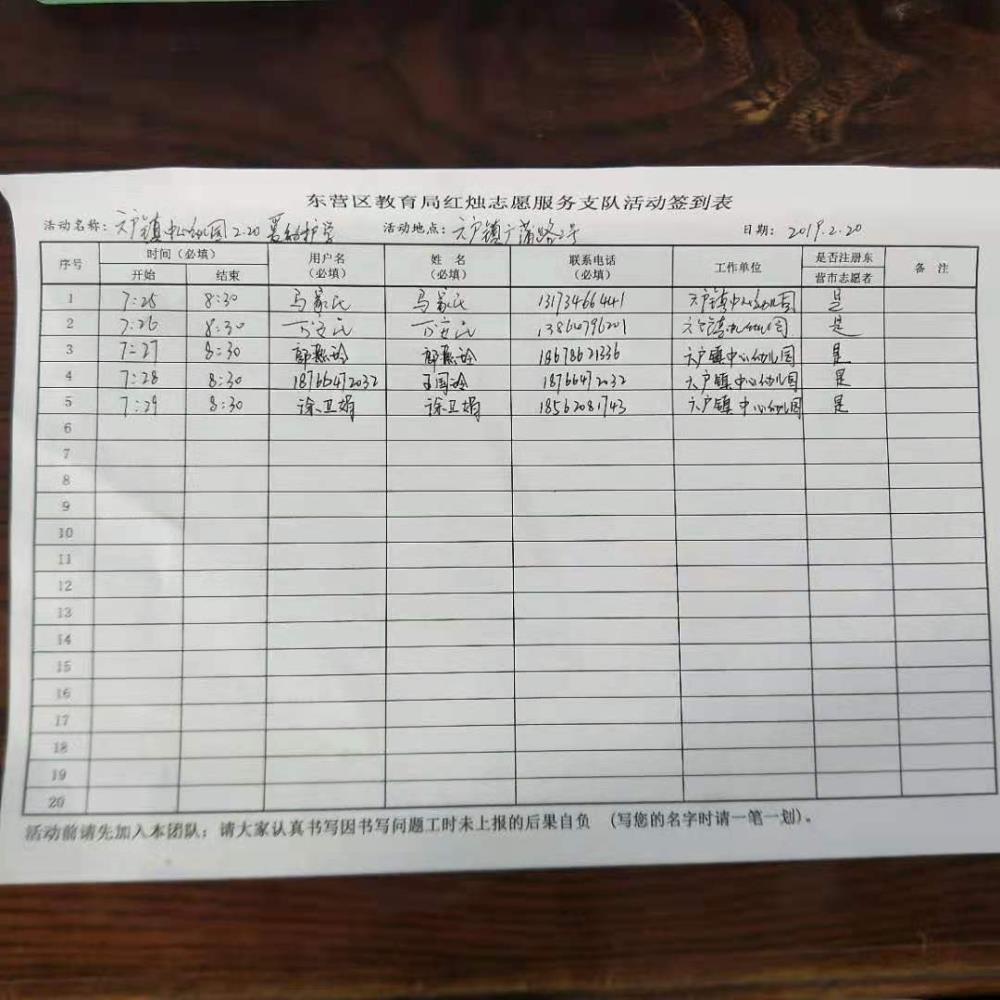 东营区教育局红烛志愿服务支队活动签到表
活动名称：六户镇中心幼儿园2.20 护学 活动地点：六户镇广蒲路2号 日期：2019.2.20
序号 时间（必填） 用户名（必填） 姓 名（必填） 联系电话（必填） 工作单位 是否注册东营市志愿者 备 注
开始 结束
1 7:25 8:30 马 马 13173466441 六户镇中心幼儿园 是
2 7:26 8:30 13864796201 六户镇中心幼儿园 是
3 7:27 8:30 郭 玲 郭 玲 18678621336 六户镇中心幼儿园 是
4 7:28 8:30 18766472032 王国玲 18766472032 六户镇中心幼儿园 是
5 7:29 8:30 徐卫娟 徐卫娟 18562081743 六户镇中心幼儿园 是
6
7
8
9
10
11
12
13
14
15
16
17
18
19
20
活动前请先加入本团队；请大家认真书写因书写问题工时未上报的后果自负 （写您的名字时请一笔一划）。